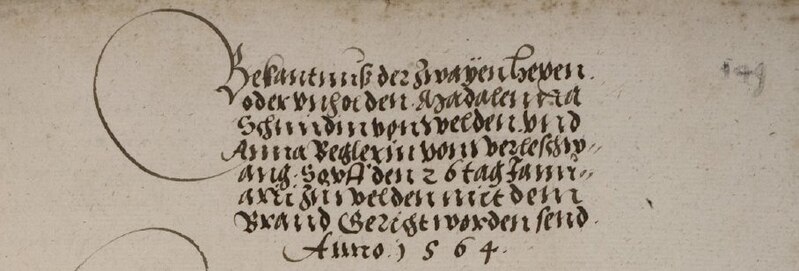 Bekantnuß der zwayen hexen.
oder vnholden. Madalenna
Schmidin von Welden. vnd
Anna Keglerin vom Verleschw=
ang. So vff den 26 tag Janu=
arii zu Welden mit dem
Brand Gericht worden send.
Anno. 1564.
149